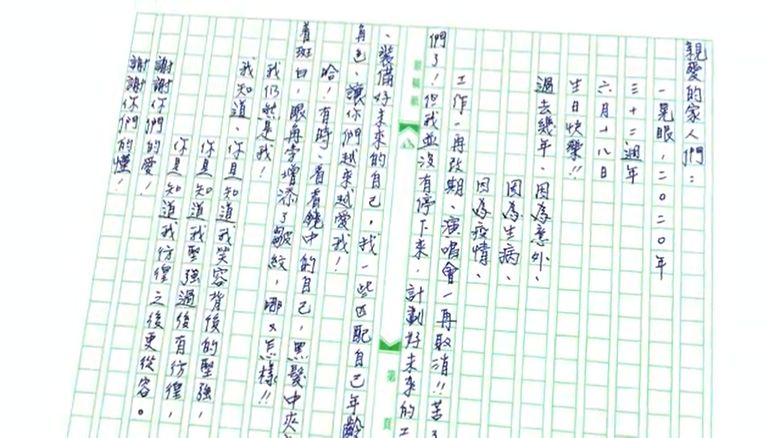 親愛的家人們：
一晃眼，二〇二〇年
三十二週年
六月十八日
生日快樂!!
過去幾年、因為意外、
因為生病、
因為疫情、
工作一再改期、演唱會一再取消!!苦了
們了！但我並沒有停下來，計劃好未來的工
、裝備好未來的自己，找一些匹配自己年齡
角色、讓你們越來越愛我！
哈！有時、看看鏡中的自己，黑髮中夾
着斑白，眼角旁增添了皺紋，哪又怎樣!!
我仍然是我！
我知道、你是知道我笑容背後的堅強，
你是知道我堅強過後有彷徨，
你是知道我彷徨之後更從容。
謝謝你們的愛！
謝謝你們的懂！
第 頁